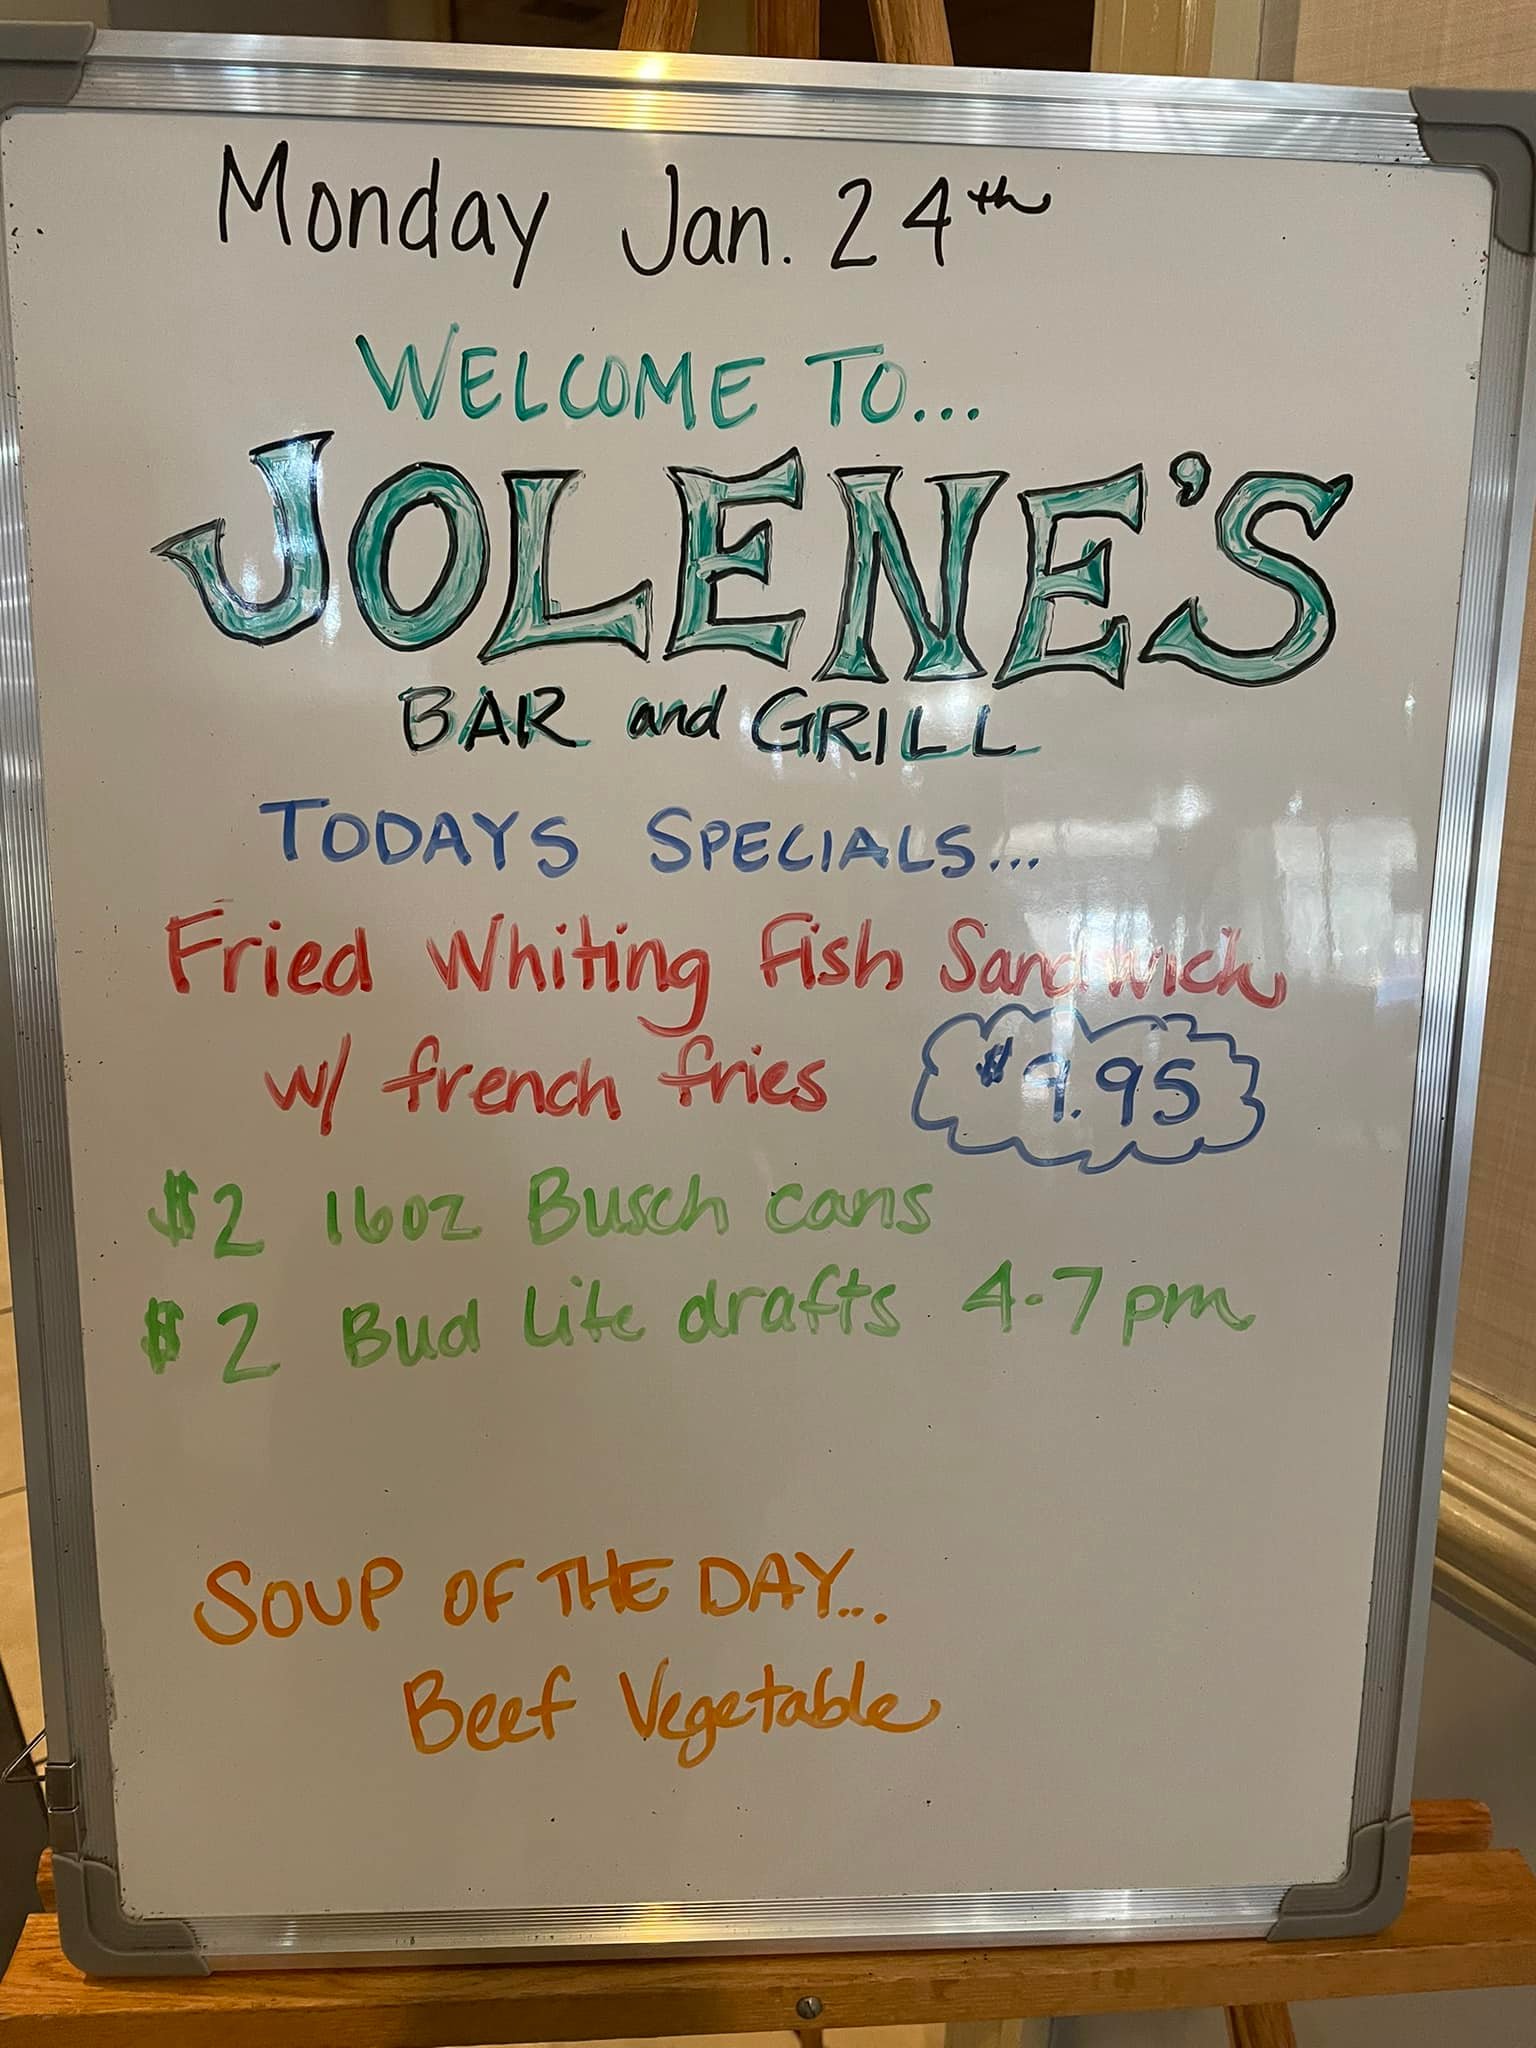 Monday Jan. 24th
WELCOME TO...
JOLENE'S
BAR and GRILL
TODAYS SPECIALS...
Fried Whiting Fish Sandwich
w/ french fries $9.95
$2 16oz Busch cans
$2 Bud Lite drafts 4-7pm
SOUP OF THE DAY...
Beef Vegetable